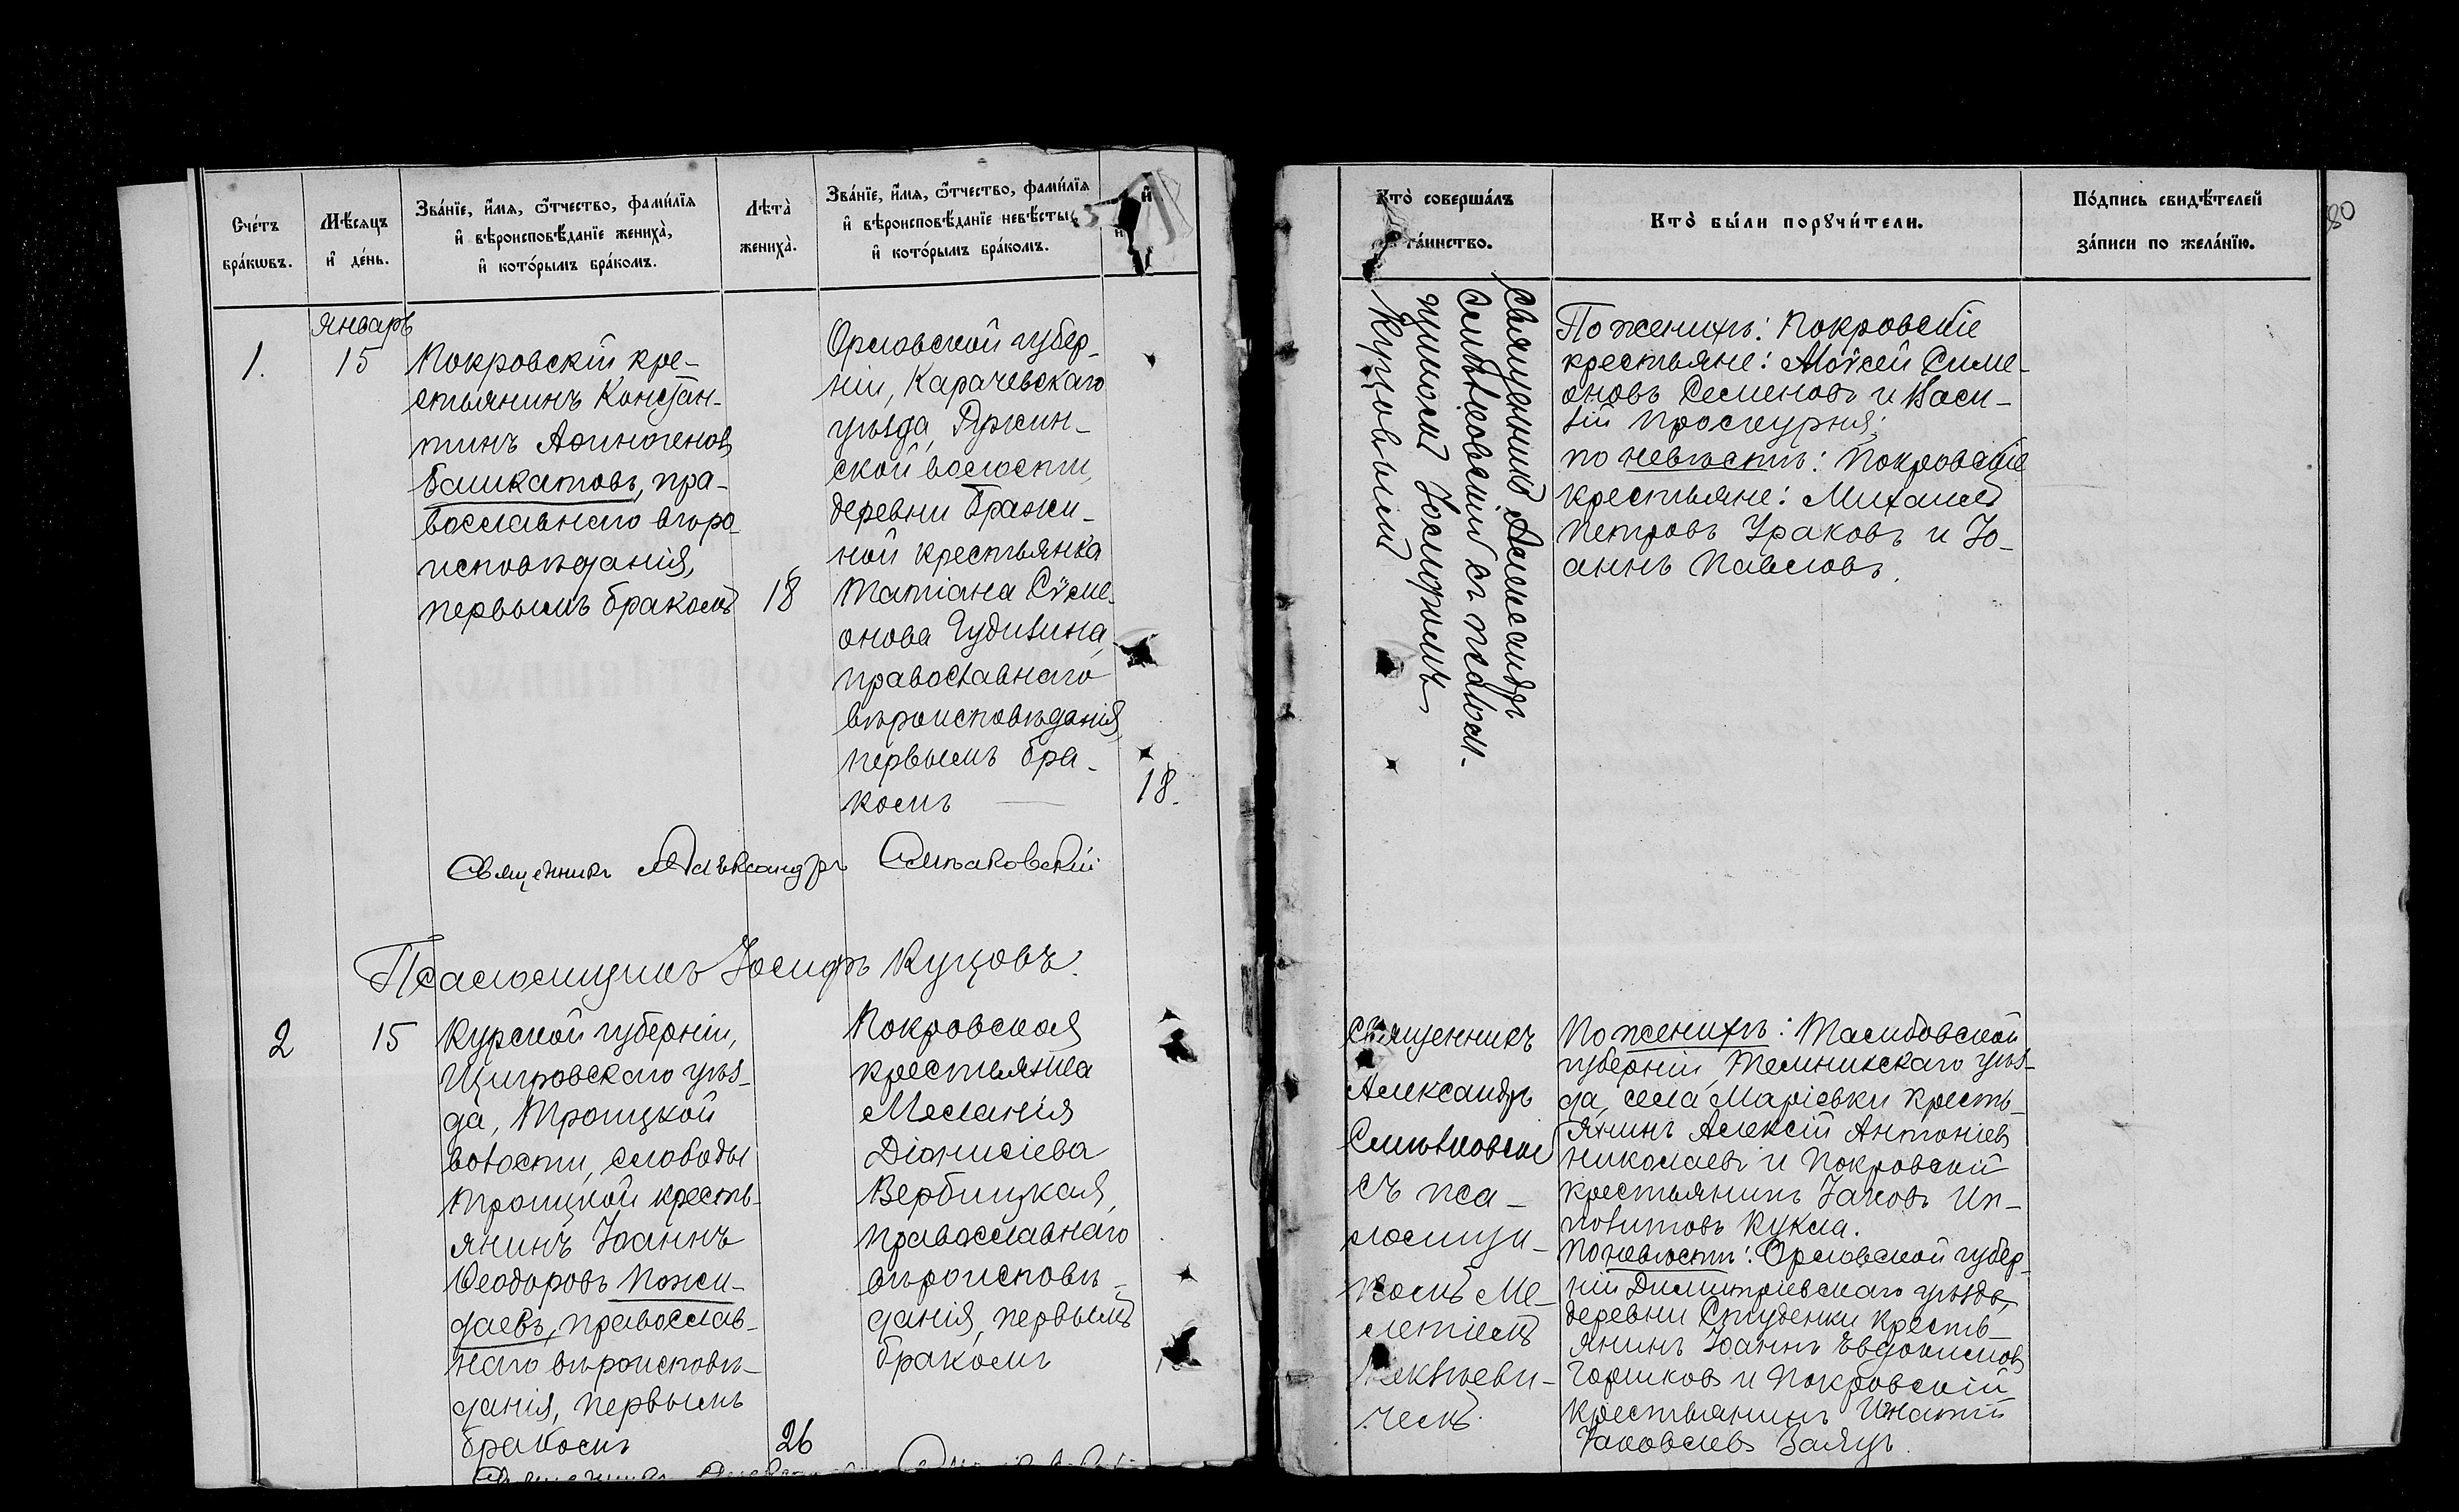 Счетъ браковъ.
Мѣсяцъ и день.
Званіе, имя, отчество, фамилія
и вѣроисповѣданіе жениха,
и которымъ бракомъ.
Лѣта жениха.
Званіе, имя, отчество, фамилія
и вѣроисповѣданіе невѣсты,
и которымъ бракомъ.
Январь
1.
15
Покровскій кре-
стьянинъ Констан-
тинъ Аѳиногенов
Башкатовъ, пра-
вославнаго вѣро-
исповѣданія,
первымъ бракомъ
18
Орловской губер-
ніи, Карачевскаго
уѣзда,
ской волости,
деревни Бражи-
ной крестьянка
Татіана Сѵме-
онова Гудилина,
православнаго
вѣроисповѣданія,
первымъ бра-
комъ
18.
Священникъ Александръ
Псаломщикъ Іосифъ Купцовъ.
2
15
Курской губерніи,
Щигровскаго уѣз-
да, Троицкой
волости, слободы
Троицкой кресть-
янинъ Іоаннъ
Ѳеодоровъ Пожи-
даевъ, православ-
наго вѣроисповѣ-
данія, первымъ
бракомъ
26
Покровская
крестьянка
Меланія
Діонисіева
Вербицкая,
православнаго
вѣроисповѣ-
данія, первымъ
бракомъ
80
Кто совершалъ
таинство.
Кто были поручители.
Подпись свидѣтелей
записи по желанію.
Священникъ Александръ
съ псалом-
щикомъ Іосифомъ
По женихѣ: Покровскіе
крестьяне: Моѵсей Симе-
оновъ Семеновъ и Васи-
лій Проскурня;
по невѣстѣ: Покровскіе
крестьяне: Михаилъ
Петровъ Ураковъ и Іо-
аннъ Павловъ.
Священникъ
Александръ
съ пса-
ломщи-
комъ Ме-
летіемъ
чемъ.
По женихѣ: Тамбовской
губерніи, Темникскаго уѣз-
да, села Маріевки кресть-
янинъ Алексій Антоніев
Николаевъ и Покровскій
крестьянинъ Іаковъ Ип-
политовъ Кукса.
По невѣстѣ: Орловской губер-
ніи Димитріевскаго уѣзда,
деревни Студенки кресть-
янинъ Іоаннъ Евдокимов
Горшковъ и Покровскій
крестьянинъ Игнатій
Іаковлевъ Заяцъ.